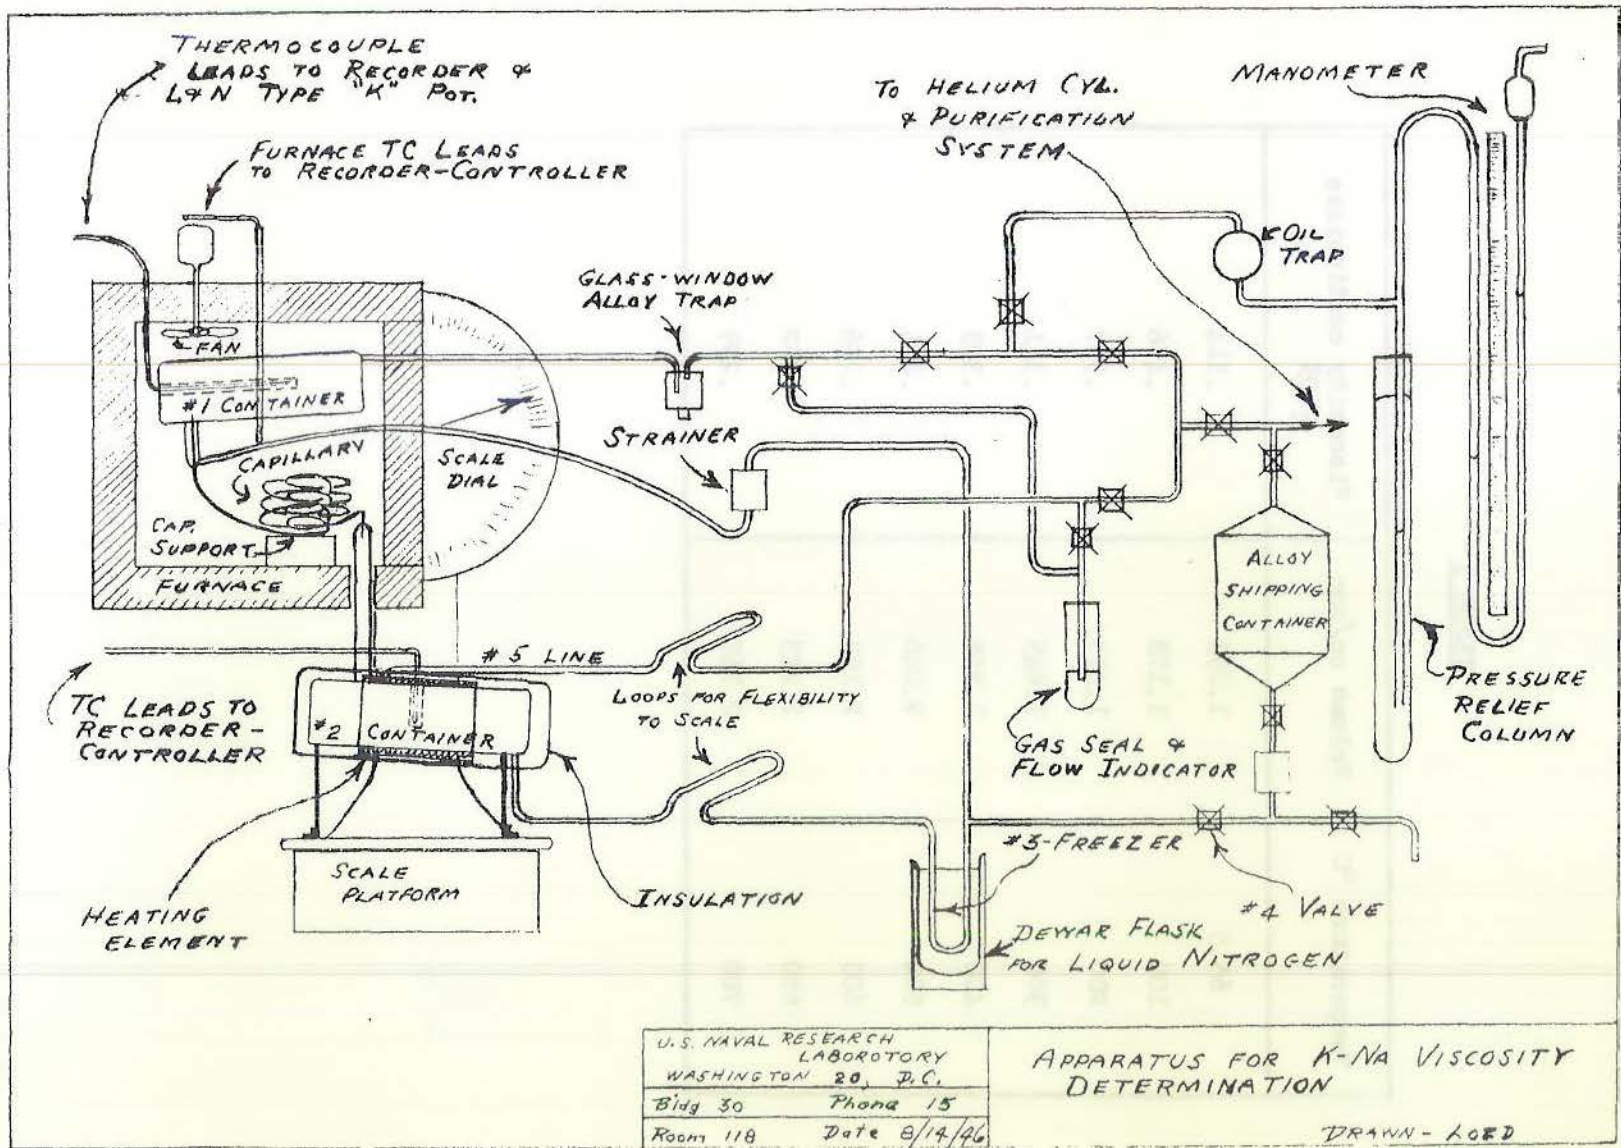 THERMOCOUPLE
LEADS TO RECORDER &
L&N TYPE "K" POT.
FURNACE TC LEADS
TO RECORDER-CONTROLLER
TO HELIUM CYL.
& PURIFICATION
SYSTEM
MANOMETER
OIL
TRAP
GLASS-WINDOW
ALLOY TRAP
FAN
#1 CONTAINER
STRAINER
CAPILLARY
SCALE
DIAL
CAP.
SUPPORT
FURNACE
ALLOY
SHIPPING
CONTAINER
#5 LINE
LOOPS FOR FLEXIBILITY
TO SCALE
TC LEADS TO
RECORDER-
CONTROLLER
#2 CONTAINER
GAS SEAL &
FLOW INDICATOR
PRESSURE
RELIEF
COLUMN
#3-FREEZER
SCALE
PLATFORM
INSULATION
#4 VALVE
HEATING
ELEMENT
DEWAR FLASK
FOR LIQUID NITROGEN
U.S. NAVAL RESEARCH
LABOROTORY
WASHINGTON 20, D.C.
Bldg 30 Phone 15
Room 118 Date 8/14/46
APPARATUS FOR K-NA VISCOSITY
DETERMINATION
DRAWN-